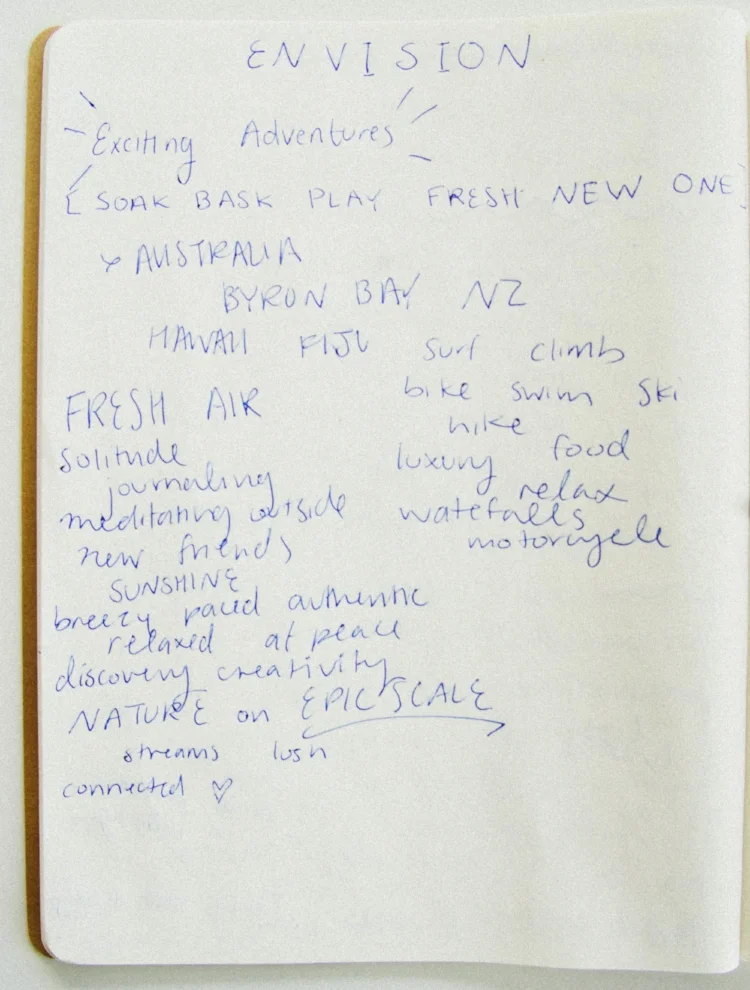 ENVISION
Exciting Adventures
[SOAK BASK PLAY FRESH NEW ONE]
AUSTRALIA
BYRON BAY NZ
HAWAII FIJI surf climb
bike swim ski
FRESH AIR
hike
solitude luxury food
journaling relax
meditating outside watefalls
new friends motorcycle
SUNSHINE
breezy paced authentic
relaxed at peace
discovery creativity
NATURE on EPIC SCALE
streams lush
connected ♡